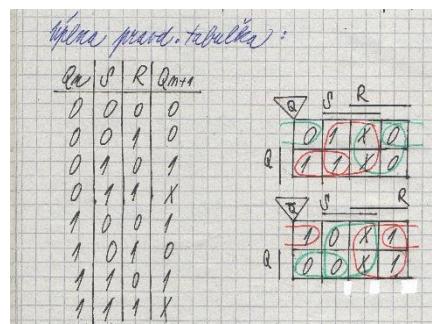 úplna pravd. tabuľka :
Qn S R Qn+1
0 0 0 0
0 0 1 0
0 1 0 1
0 1 1 X
1 0 0 1
1 0 1 0
1 1 0 1
1 1 1 X
S R
Q
0 1 X 0
Q 1 1 X 0
S R
1 0 X 1
Q 0 0 X 1